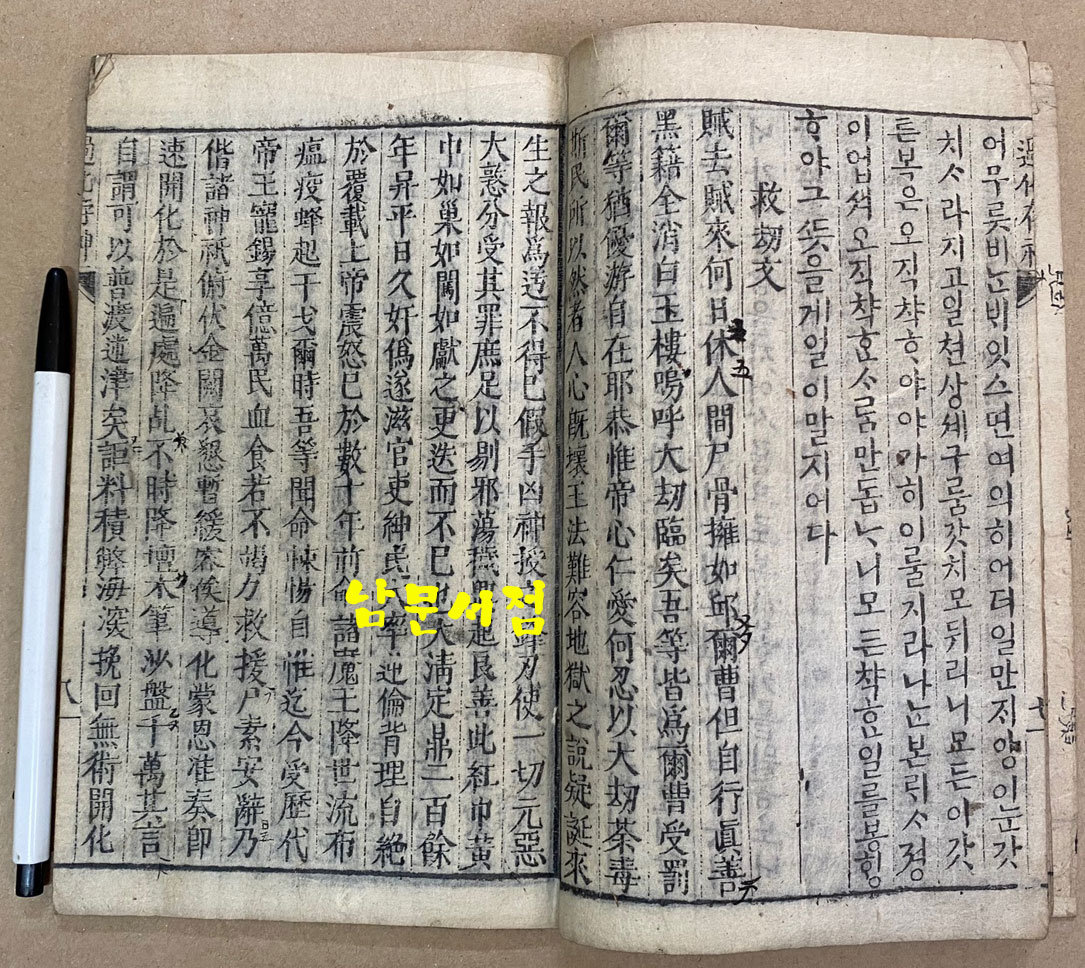 過化存神
어무릇비ᄂᆞᆫ배잇스면여의히어더일만ᄌᆡ앙이눈갓
치ᄉᆞ라지고일쳔상셰구룸갓치모뒤리니모든아갓
튼복은오직챡ᄒᆞ야야마히이룰지라나ᄂᆞᆫ본ᄅᆡᄉᆞ졍
이업셔오직챡ᄒᆞᆫᄉᆞ룸만돕ᄂᆞ니모든챡ᄒᆞᆫ일를봉ᄒᆡᆼ
ᄒᆞ야그ᄯᅳᆺ을게일이말지어다
救劫文
賊去賊來何日休人間尸骨擁如邱爾曹但自行眞善
黑籍全消白玉樓嗚呼大劫臨矣吾等皆爲爾曹受罰
爾等猶優游自在耶恭惟帝心仁愛何忍以大劫荼毒
斯民所以然者人心旣壞王法難容地獄之說疑誕來
生之報爲遠不得已假手凶神授之鋒刃使一切元惡
大憝分受其罪庶足以剔邪蕩穢興起良善此紅巾黃
中如巢如闖如獻之更迭而不已也大淸定鼎二百餘
年昇平日久奸僞遂滋官吏紳民 率 逆倫背理自絶
於覆載上帝震怒已於數十年前命諸魔王降世流布
瘟疫蜂起干戈爾時吾等聞命悚惕自惟迄今受歷代
帝王寵錫享億萬民血食若不竭力救援尸素安辭乃
偕諸神祇俯伏金闕哀懇暫緩容俟導化蒙恩准奏卽
速開化於是遍處降乩不時降壇木筆沙盤千萬其言
自謂可以普渡迷津矣詎料積弊海深挽回無術開化
過化存神
남문서점